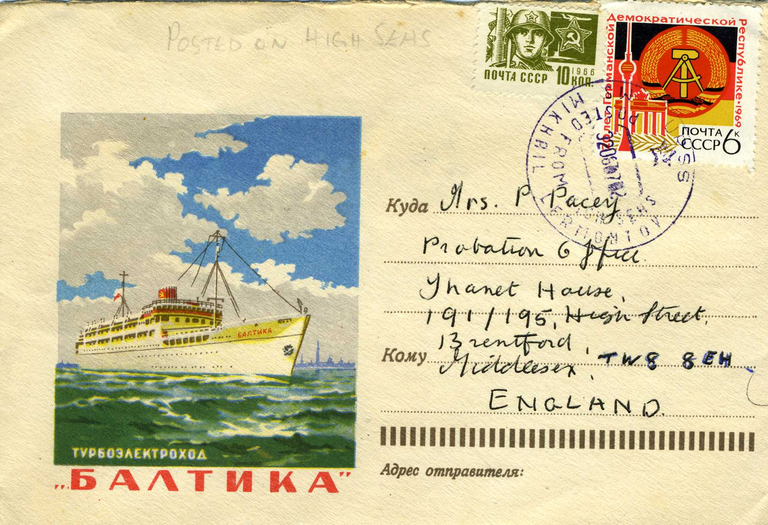 POSTED ON HIGH SEAS
1966
ПОЧТА СССР 10 КОП.
лет Германской Демократической Республике · 1969
ПОЧТА
СССР 6 к
MIKHAIL LERMONTOV
POSTED FROM
HIGH SEAS
Куда Mrs. P. Pacey
Probation Office.
Thanet House,
191/195, High Street,
Brentford,
Кому Middlesex, TW8 8EH
ENGLAND.
БАЛТИКА
ТУРБОЭЛЕКТРОХОД
„БАЛТИКА"
Адрес отправителя: